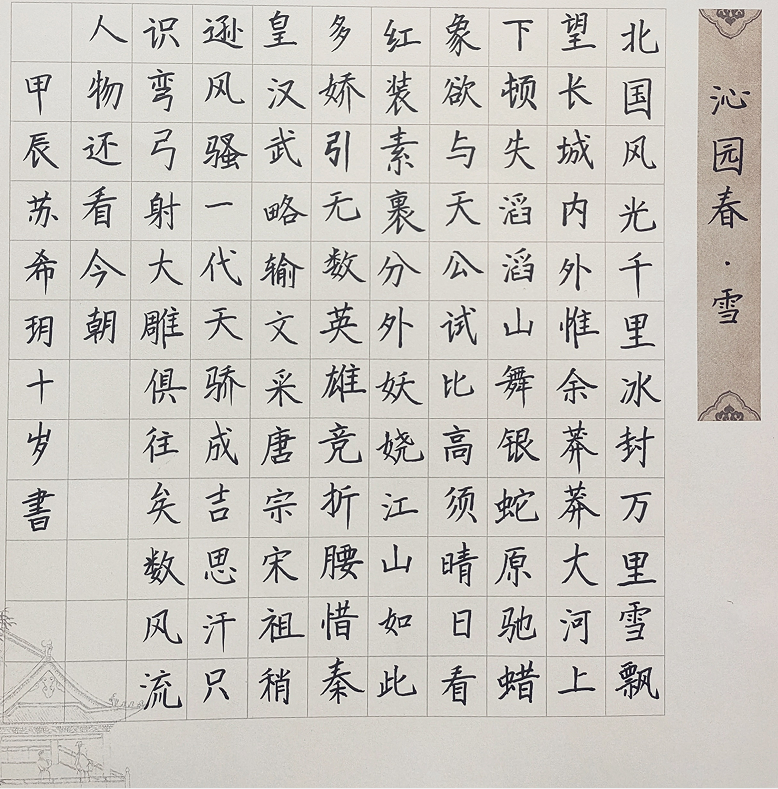 沁园春·雪
北国风光千里冰封万里雪飘
望长城内外惟余莽莽大河上
下顿失滔滔山舞银蛇原驰蜡
象欲与天公试比高须晴日看
红装素裹分外妖娆江山如此
多娇引无数英雄竞折腰惜秦
皇汉武略输文采唐宗宋祖稍
逊风骚一代天骄成吉思汗只
识弯弓射大雕俱往矣数风流
人物还看今朝
甲辰苏希玥十岁書